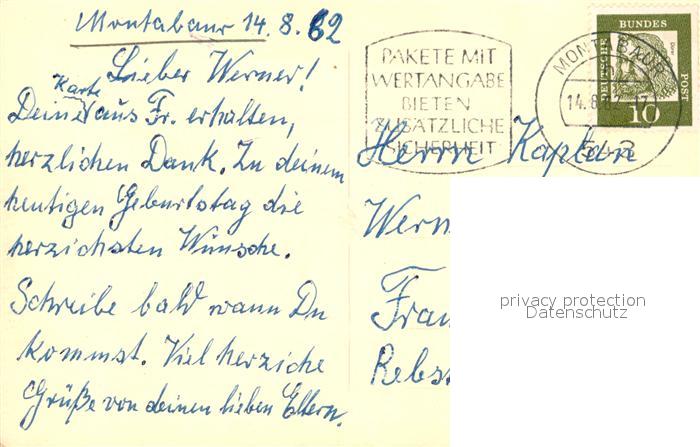 Montabaur 14.8.62
Lieber Werner!
Karte
Deine aus Fr. erhalten,
herzlichen Dank. Zu deinem
heutigen Geburtstag die
herzichsten Wünsche.
Schreibe bald wann Du
kommst. Viel herziche
Grüße von deinen lieben Eltern.
PAKETE MIT
WERTANGABE
BIETEN
ZUSÄTZLICHE
SICHERHEIT
MONTABAUR
14.8.62-17
543
DEUTSCHE
BUNDES
POST
10
Herrn Kaplan
Wern
Fran
Rebs
privacy protection
Datenschutz